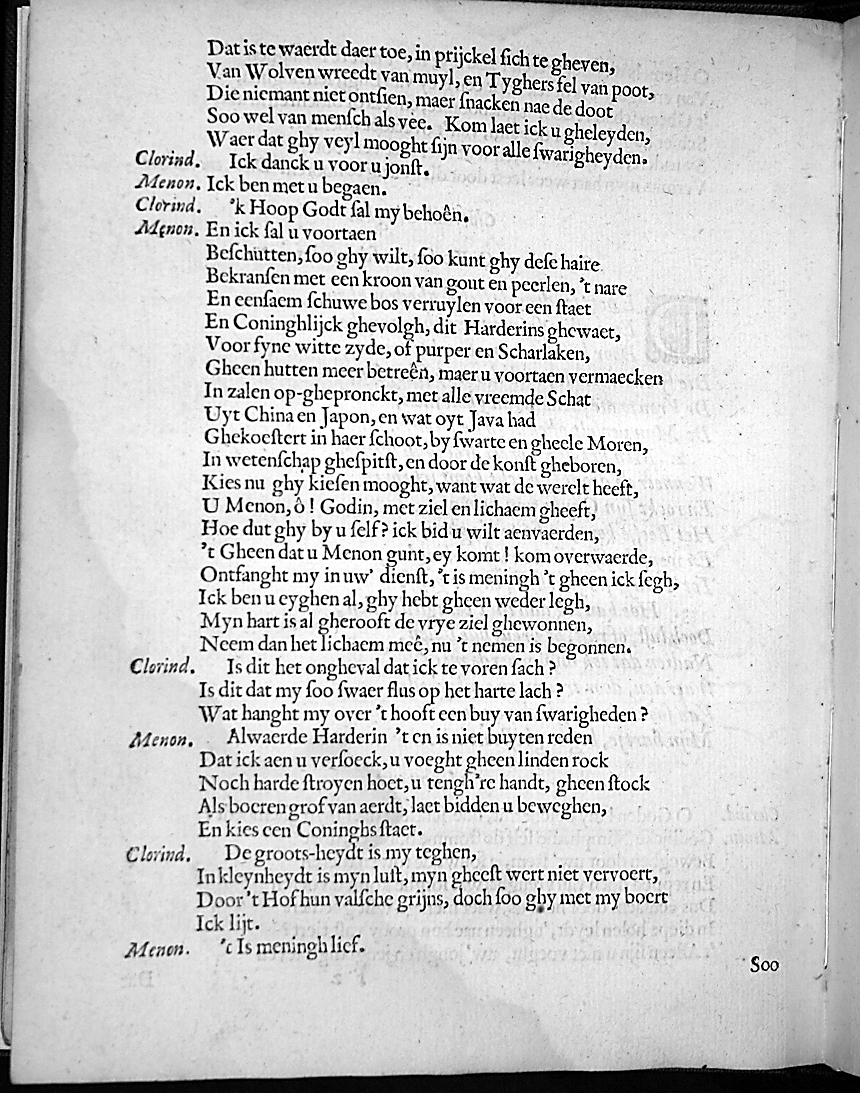 Dat is te waerdt daer toe, in prijckel ſich te gheven,
Van Wolven wreedt van muyl, en Tyghers fel van poot,
Die niemant niet ontſien, maer ſnacken nae de doot
Soo wel van menſch als vee. Kom laet ick u gheleyden,
Waer dat ghy veyl mooght ſijn voor alle ſwarigheyden.
Clorind. Ick danck u voor u jonſt.
Menon. Ick ben met u begaen.
Clorind. 'k Hoop Godt ſal my behoên.
Menon. En ick ſal u voortaen
Beſchutten, ſoo ghy wilt, ſoo kunt ghy deſe haire
Bekranſen met een kroon van gout en peerlen, 't nare
En eenſaem ſchuwe bos verruylen voor een ſtaet
En Coninghlijck ghevolgh, dit Harderins ghewaet,
Voor fyne witte zyde, of purper en Scharlaken,
Gheen hutten meer betreên, maer u voortaen vermaecken
In zalen op-ghepronckt, met alle vreemde Schat
Uyt China en Japon, en wat oyt Java had
Ghekoeſtert in haer ſchoot, by ſwarte en gheele Moren,
In wetenſchap gheſpitſt, en door de konſt gheboren,
Kies nu ghy kieſen mooght, want wat de werelt heeft,
U Menon, ô! Godin, met ziel en lichaem gheeft,
Hoe dut ghy by u ſelf? ick bid u wilt aenvaerden,
't Gheen dat u Menon gunt, ey komt! kom overwaerde,
Ontfanght my in uw' dienſt, 't is meningh 't gheen ick ſegh,
Ick ben u eyghen al, ghy hebt gheen weder legh,
Myn hart is al gherooft de vrye ziel ghewonnen,
Neem dan het lichaem meê, nu 't nemen is begonnen.
Clorind. Is dit het ongheval dat ick te voren ſach?
Is dit dat my ſoo ſwaer flus op het harte lach?
Wat hanght my over 't hooft een buy van ſwarigheden?
Menon. Alwaerde Harderin 't en is niet buyten reden
Dat ick aen u verſoeck, u voeght gheen linden rock
Noch harde ſtroyen hoet, u tengh're handt, gheen ſtock
Als boeren grof van aerdt, laet bidden u beweghen,
En kies een Coninghs ſtaet.
Clorind. De groots-heydt is my teghen,
In kleynheydt is myn luſt, myn gheeſt wert niet vervoert,
Door 't Hof hun valſche grijns, doch ſoo ghy met my boert
Ick lijt.
Menon. 't Is meningh lief.
Soo